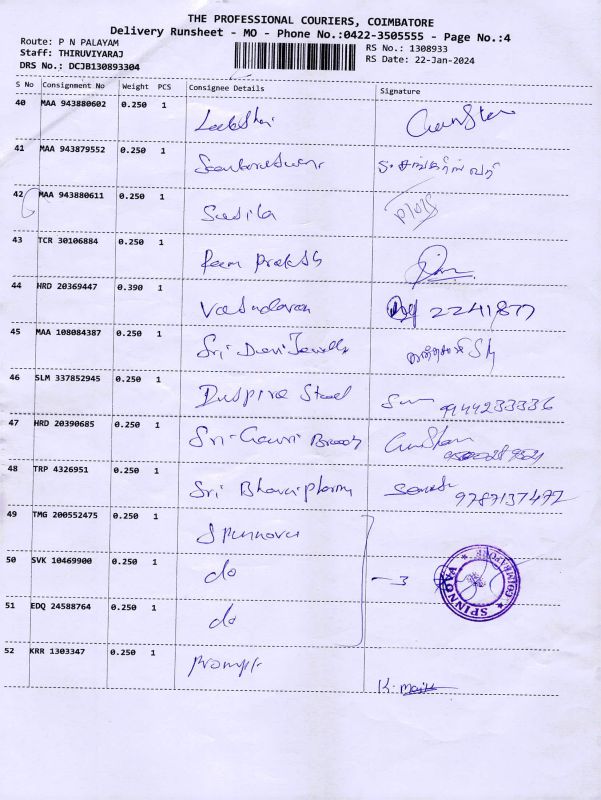 THE PROFESSIONAL COURIERS, COIMBATORE
Delivery Runsheet - MO - Phone No.:0422-3505555 - Page No.:4
Route: P N PALAYAM
Staff: THIRUVIYARAJ
DRS No.: DCJB130893304
RS No.: 1308933
RS Date: 22-Jan-2024
S No Consignment No Weight PCS Consignee Details Signature
40 MAA 943880602 0.250 1
41 MAA 943879552 0.250 1
42 MAA 943880611 0.250 1 Susila
43 TCR 30106884 0.250 1 Ram Prakash
44 HRD 20369447 0.390 1 Vasudavan 2241877
45 MAA 108084387 0.250 1 Sri Devi Jewells
46 SLM 337852945 0.250 1 Steel 9144233336
47 HRD 20390685 0.250 1 Sri Gauri
48 TRP 4326951 0.250 1 Sri Bhavani 9787137497
49 TMG 200552475 0.250 1 Spinnova
50 SVK 10469900 0.250 1 do - 3
51 EDQ 24588764 0.250 1 do
52 KRR 1303347 0.250 1 Prompt
K.